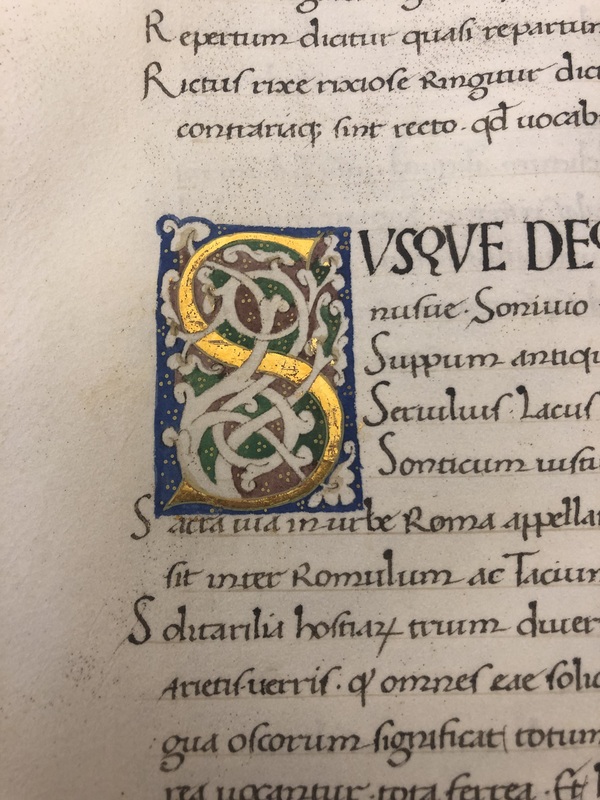 Repertum dicitur quasi repartum
Rictus rixe rixiose Ringitur dici
contrariaq; sint recto. qd̄ uocab
SVSQVE DEQ
nusue. Soniuio
Suppum antiqu
Seruilius Lacus
Sonticum iusti
Sacra uia in urbe Roma appellat
sit inter Romulum ac Tacium
Solitaurilia hostiaꝝ trium diuer
Arietis. uerris. q' omnes eae solid
gua oscorum significat totum
rea uocantur tota ferrea. Et h